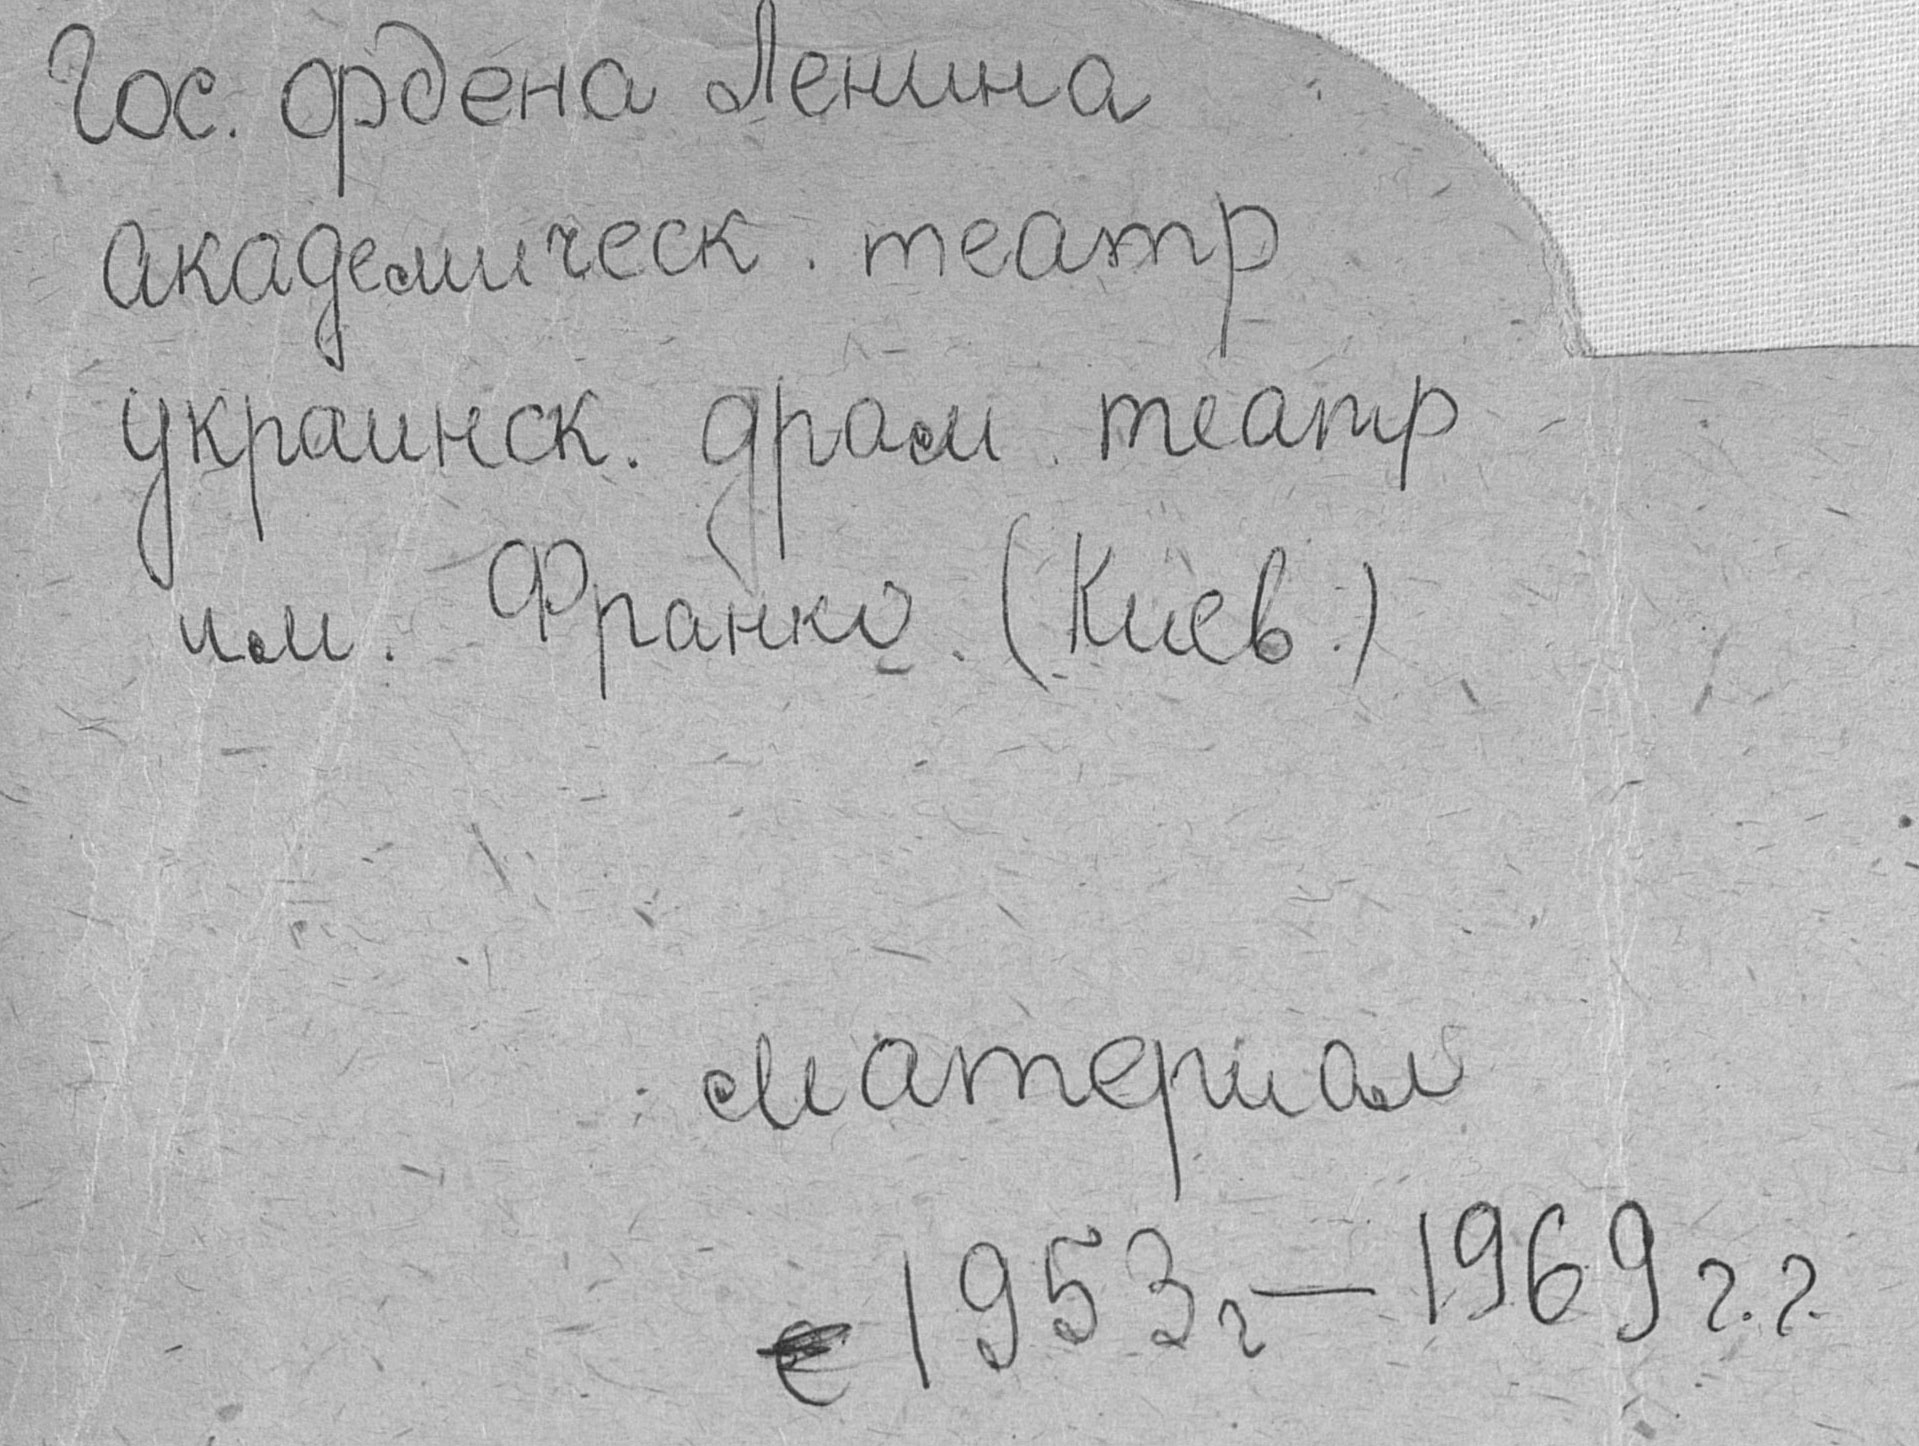 Гос. ордена Ленина
академическ. театр
украинск. драм. театр
им. Франко. (Киев.)
Материал
1953г — 1969 г.г.